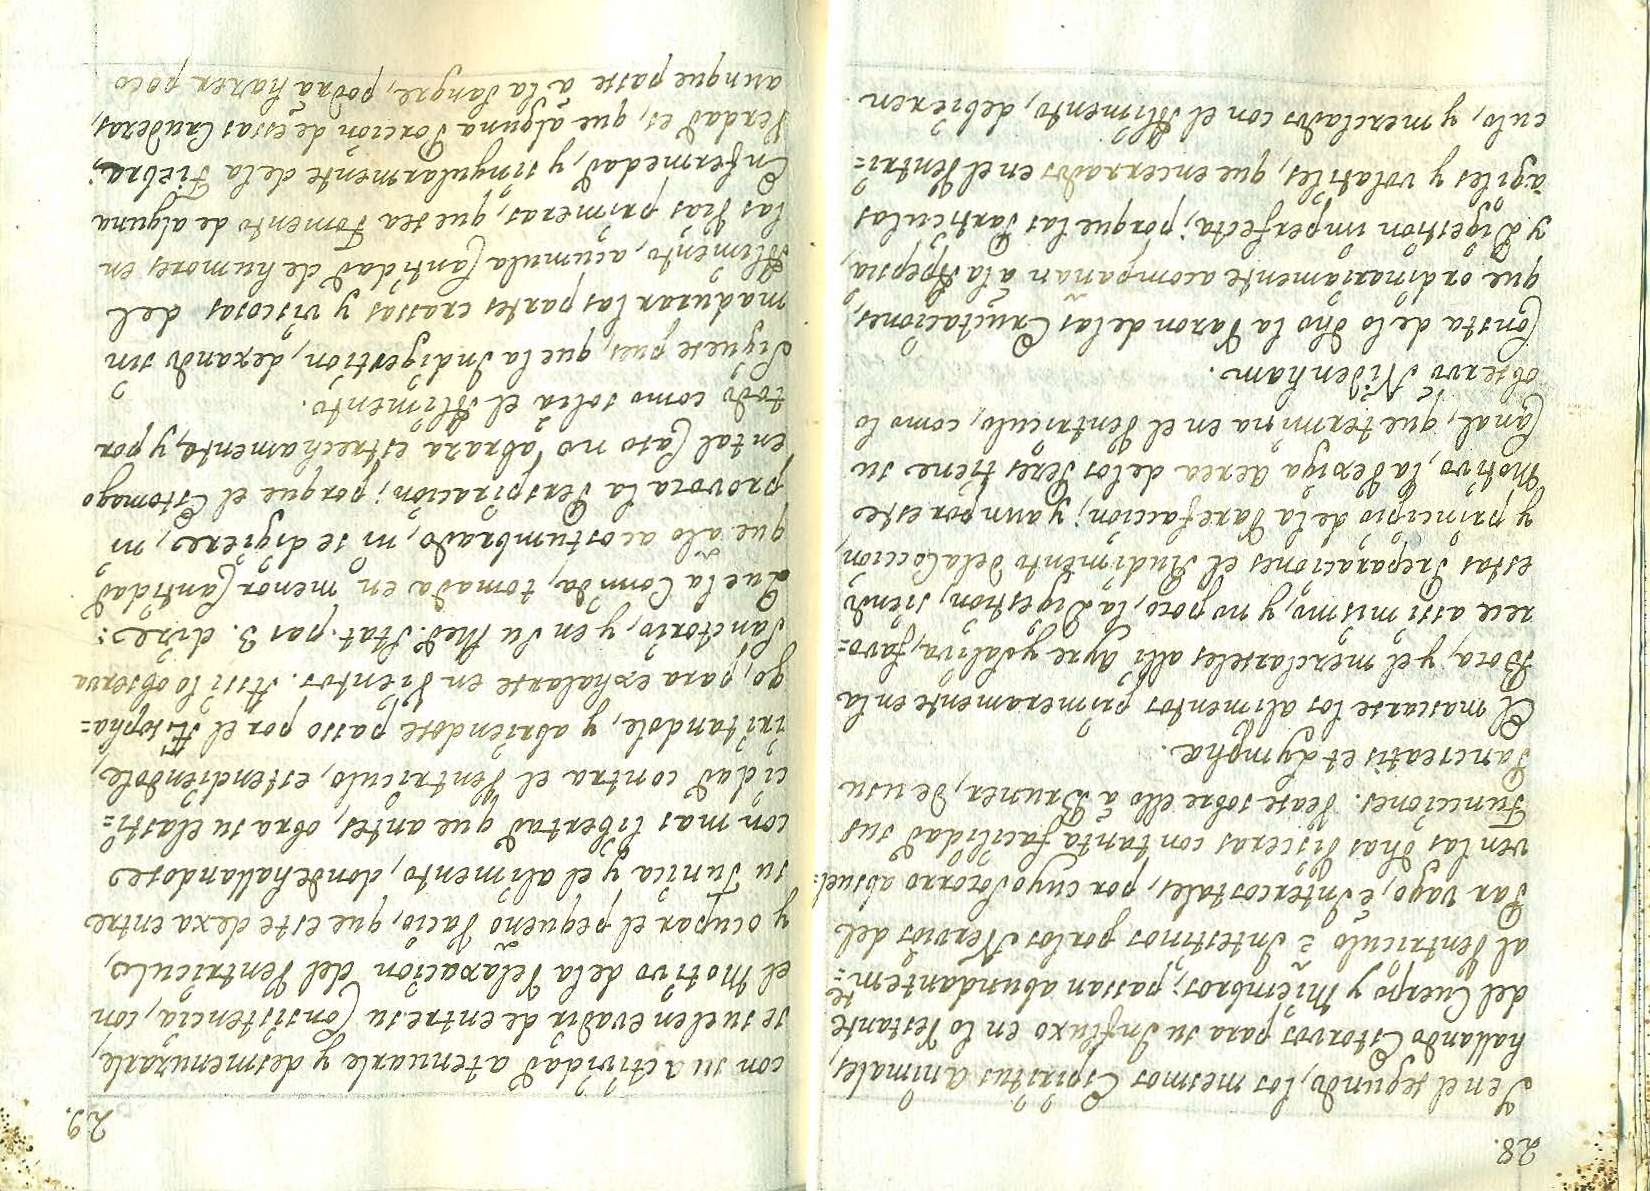 28.
Y en el segundo, los mesmos Espiritus animales,
hallando Estorvos para su Influxo en lo restante
del Cuerpo y Miembros; passan abundantem=te
al Ventriculo è Intestinos por los Nervios del
Par vago, è Intercostales, por cuyo Socorro absuel=
ven las dhas Visceras con tanta facilidad sus
Funcciones. Vease sobre ello à Bruner, De usu
Pancreatis et Lymphæ.
El mascarse los alimentos primeramente en la
Boca, y el mezclarseles alli Ayre y Saliva, favo=
rece assi mismo, y no poco, la Digestion, siendo
estas Preparaciones el Rudimento de la Coccion,
y principio de la Rarefaccion; y aun por este
Motivo, la Vexiga aerea de los Peces tiene su
Canal, que termina en el Ventriculo, como lo
observò Nidenham.
Consta de lo dho la Razon de las Eructaciones,
que ordinariamente acompañan à la Apepsia,
y Digestion imperfecta; porque las Particulas
àgiles y volatiles, que encerrados en el Ventri=
culo, y mezclados con el Alimento, debieren
29.
con su actividad atenuarle y desmenuzarle,
se suelen evadir de entre su Consistencia, con
el Motivo de la Relaxacion del Ventriculo,
y ocupar el pequeño Vacio, que este dexa entre
su Tunica y el alimento, donde hallandose
con mas libertad que antes, obra su Elasti=
cidad contra el Ventriculo, estendiendole,
irritandole, y abriendose passo por el Æsopha=
go, para exhalarse en Vientos. Assi lo observa
Sanctorio, y en su Med. Stat. pag. 3. dize:
Que la Comida, tomada en menor Cantidad
que a lo acostumbrado, ni se digiere, ni
provoca la Perspiracion; porque el Estomago
en tal Caso no abraza estrechamente, y por
todo como solia el Alimento.
Siguese pues, que la Indigestion, dexando sin
madurar las partes crassas y viscosas del
Alimento, acumula Cantidad de humores en
las Vias primeras, que sea Fomento de alguna
Enfermedad, y singularmente de la Fiebra;
Verdad es, que alguna Porcion de essas Cruderas,
aunque passe à la Sangre, podrà hazer poco